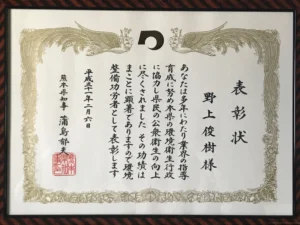 表彰状
野上俊樹様
あなたは多年にわたり業界の指導
育成に努め本県の環境衛生行政
に協力し県民の公衆衛生の向上
に尽くされました その功績は
まことに顕著でありますので環境
整備功労者として表彰します
平成二十一年二月六日
熊本県知事 蒲島郁夫